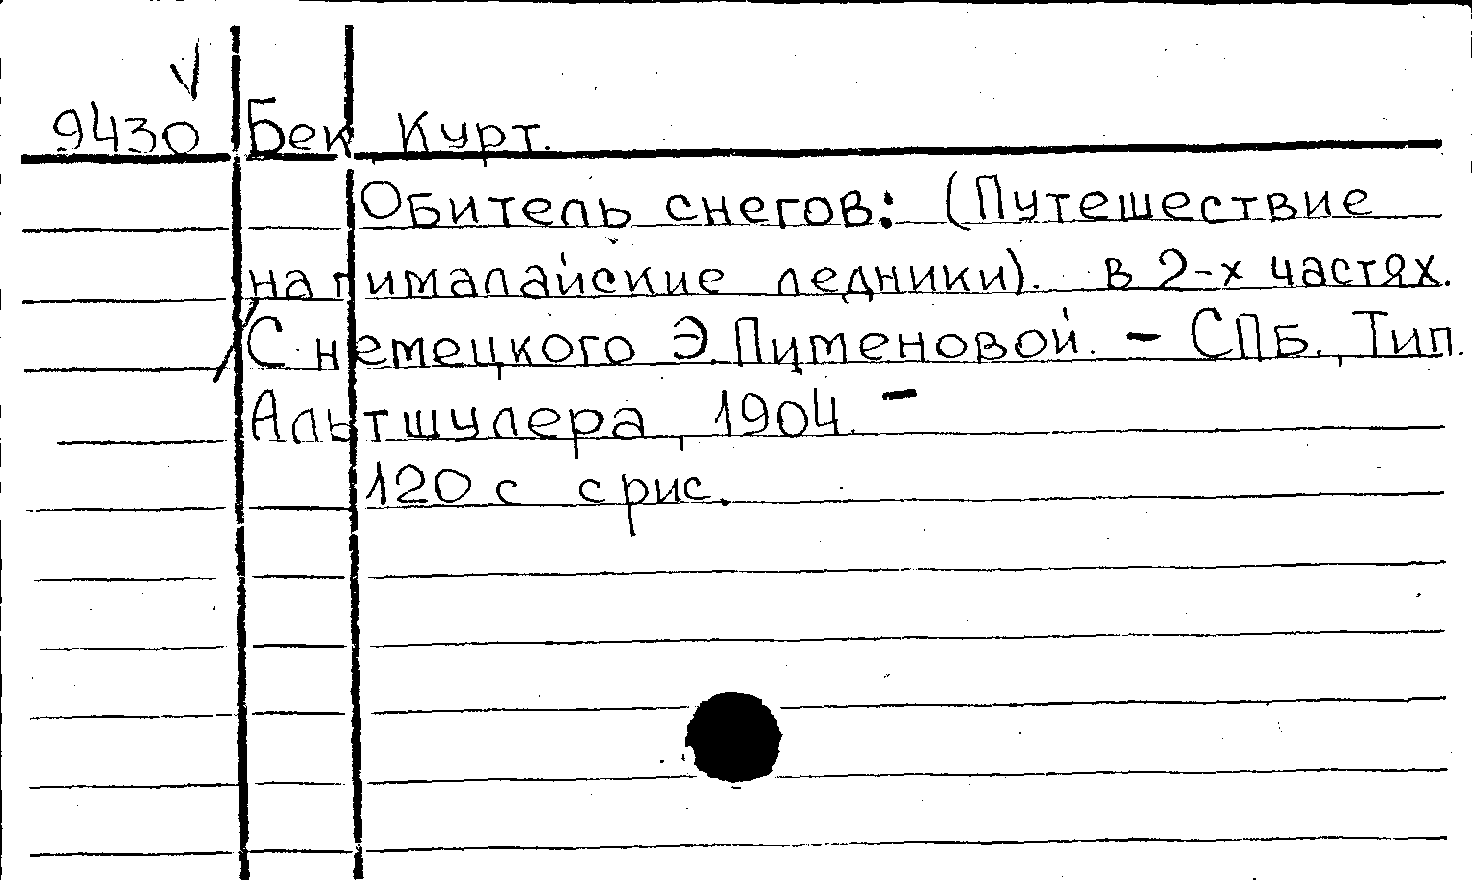 9430 Бек Курт.
Обитель снегов: (Путешествие
на гималайские ледники). в 2-х частях.
С немецкого Э. Пименовой. – СПБ., Тип.
Альтшулера, 1904. –
120 с с рис.